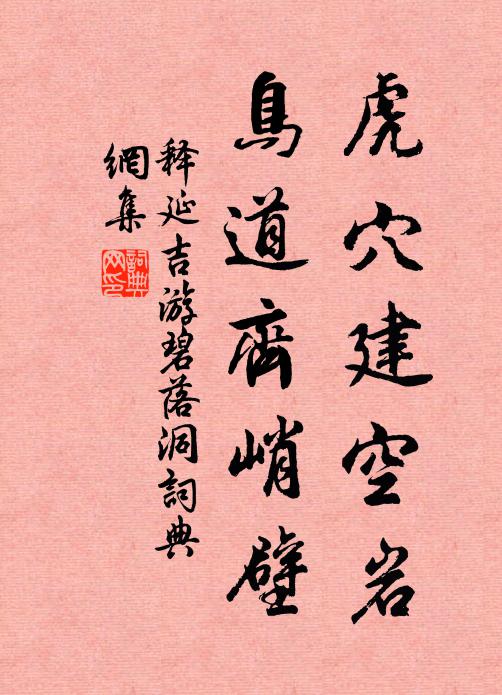 虎穴建空岩
鳥道齊峭壁
释延吉游碧落洞詞典
網集
詞典网印